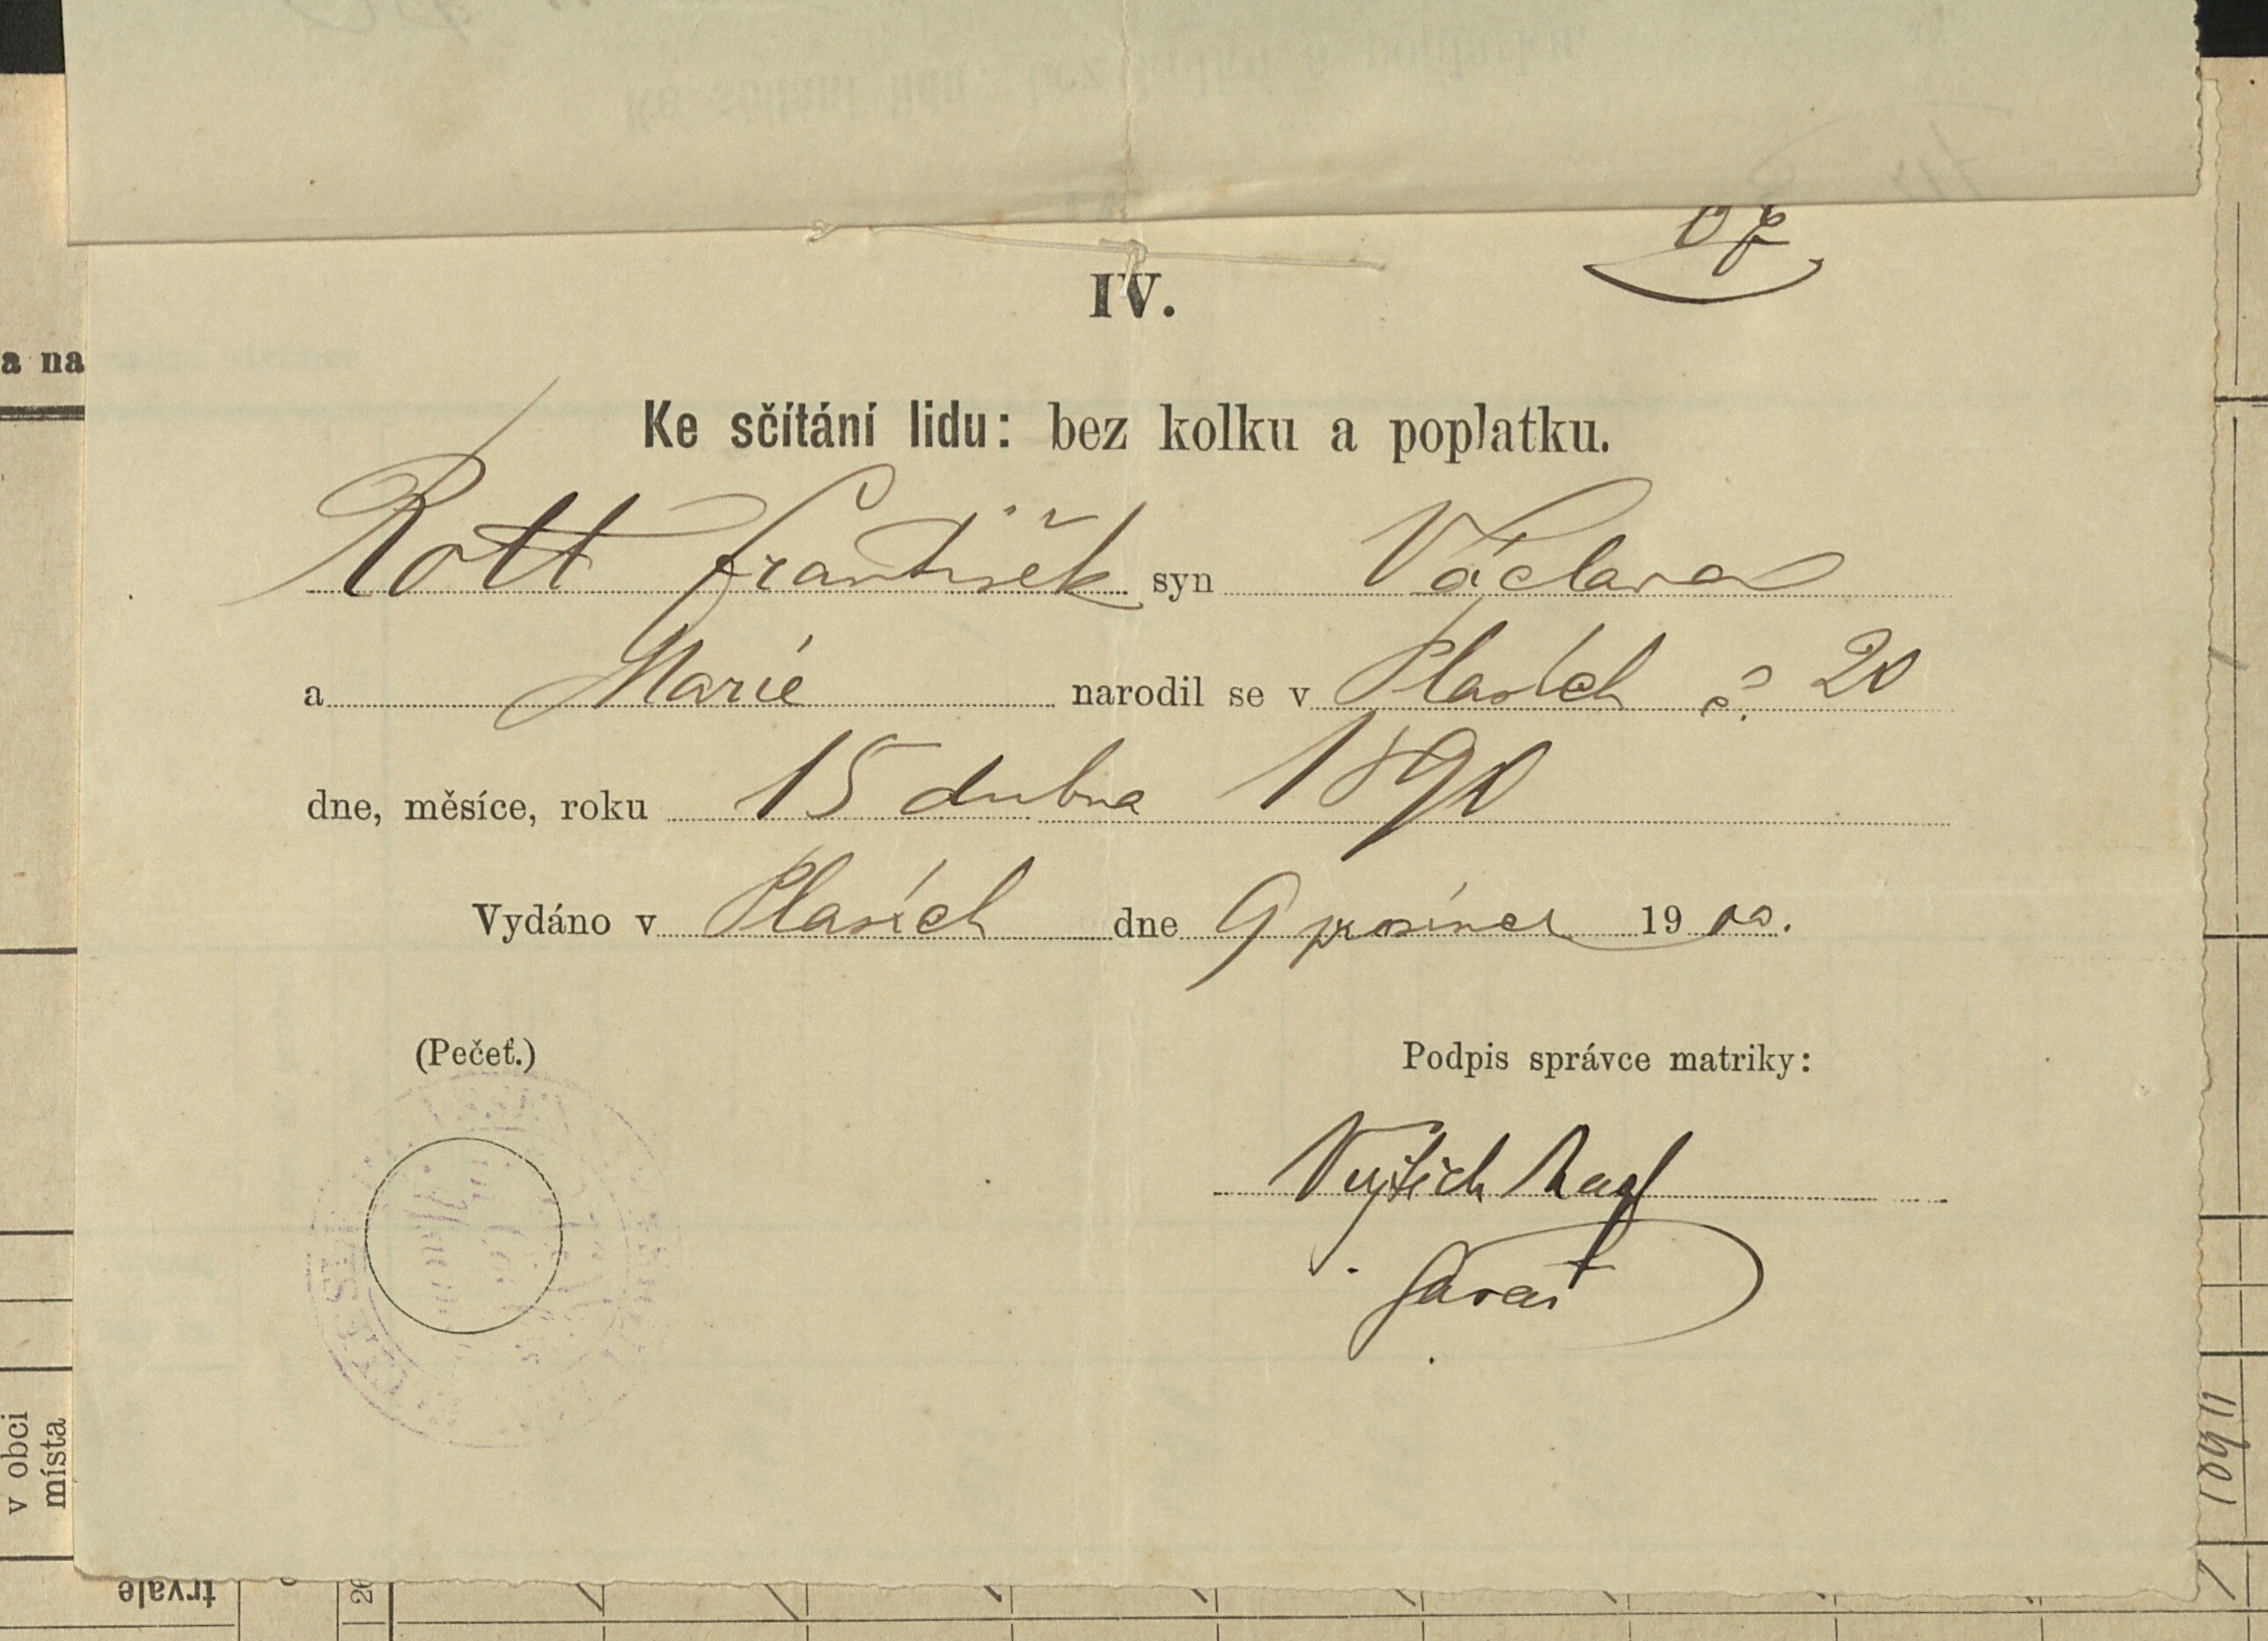 IV.
Ke sčítání lidu: bez kolku a poplatku.
Rott František syn Václava
a Marie narodil se v Plasích č. 20
dne, měsíce, roku 15 dubna 1890
Vydáno v Plasích dne 9 prosince 1900.
(Pečeť.) Podpis správce matriky:
Vojtěch
farář
a na
v obci
místa
trvale